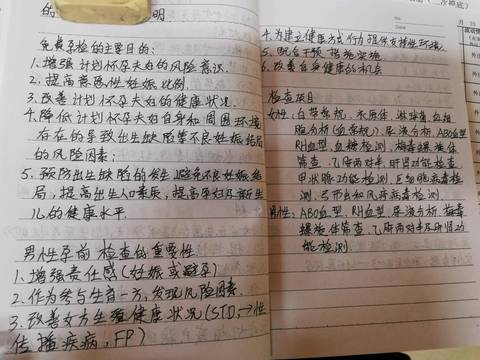 的 明
免费孕检的主要目的:
1.增强计划怀孕夫妇的风险意识.
2.提高意愿性妊娠比例.
3.改善计划怀孕夫妇的健康状况.
4.降低计划怀孕夫妇自身和周围环境
存在的导致出生缺陷等不良妊娠结局
的风险因素;
5.预防出生缺陷的发生,避免不良妊娠结
局,提高出生人口素质,提高孕妇及新生
儿的健康水平.
男性孕前检查的重要性
1.增强责任感(妊娠或避孕)
2.作为参与生育一方,发现风险因素.
3.改善女方生殖健康状况(STD,→性
传播疾病,FP)
4.为建立健康方式行为提供支持性环境.
5.配合干预措施实施
6.改善自身健康的机会
检查项目
女性:白带常规、衣原体、淋球菌、血细
胞分析(血常规)、尿液分析、ABO血型
RH血型、血糖检测、梅毒螺旋体
筛查、乙肝两对半、肝肾功能检查、
甲状腺功能检测、巨细胞病毒检
测、弓形虫和风疹病毒检测.
男性:ABO血型、RH血型、尿液分析、梅毒
螺旋体筛查、乙肝两对半及肝肾功
能检测.